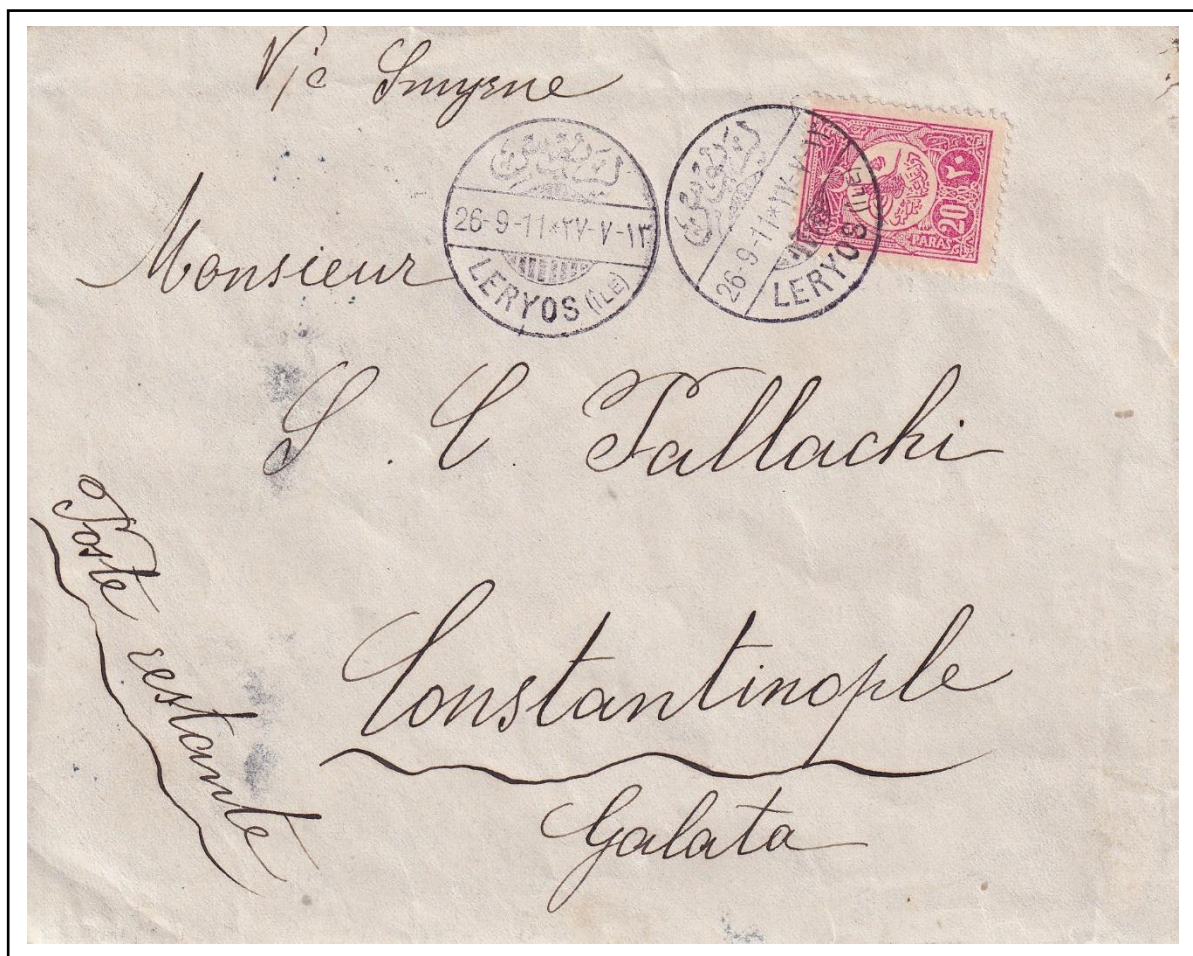 V/a Smyrne
26-9-11*٢٧-٧-١٣
LERYOS (ÎLE)
26-9-11*٢٧-٧-١٣
LERYOS (ÎLE)
٢٠
20
PARAS
Monsieur
S. C. Pallachi
Poste restante
Constantinople
Galata